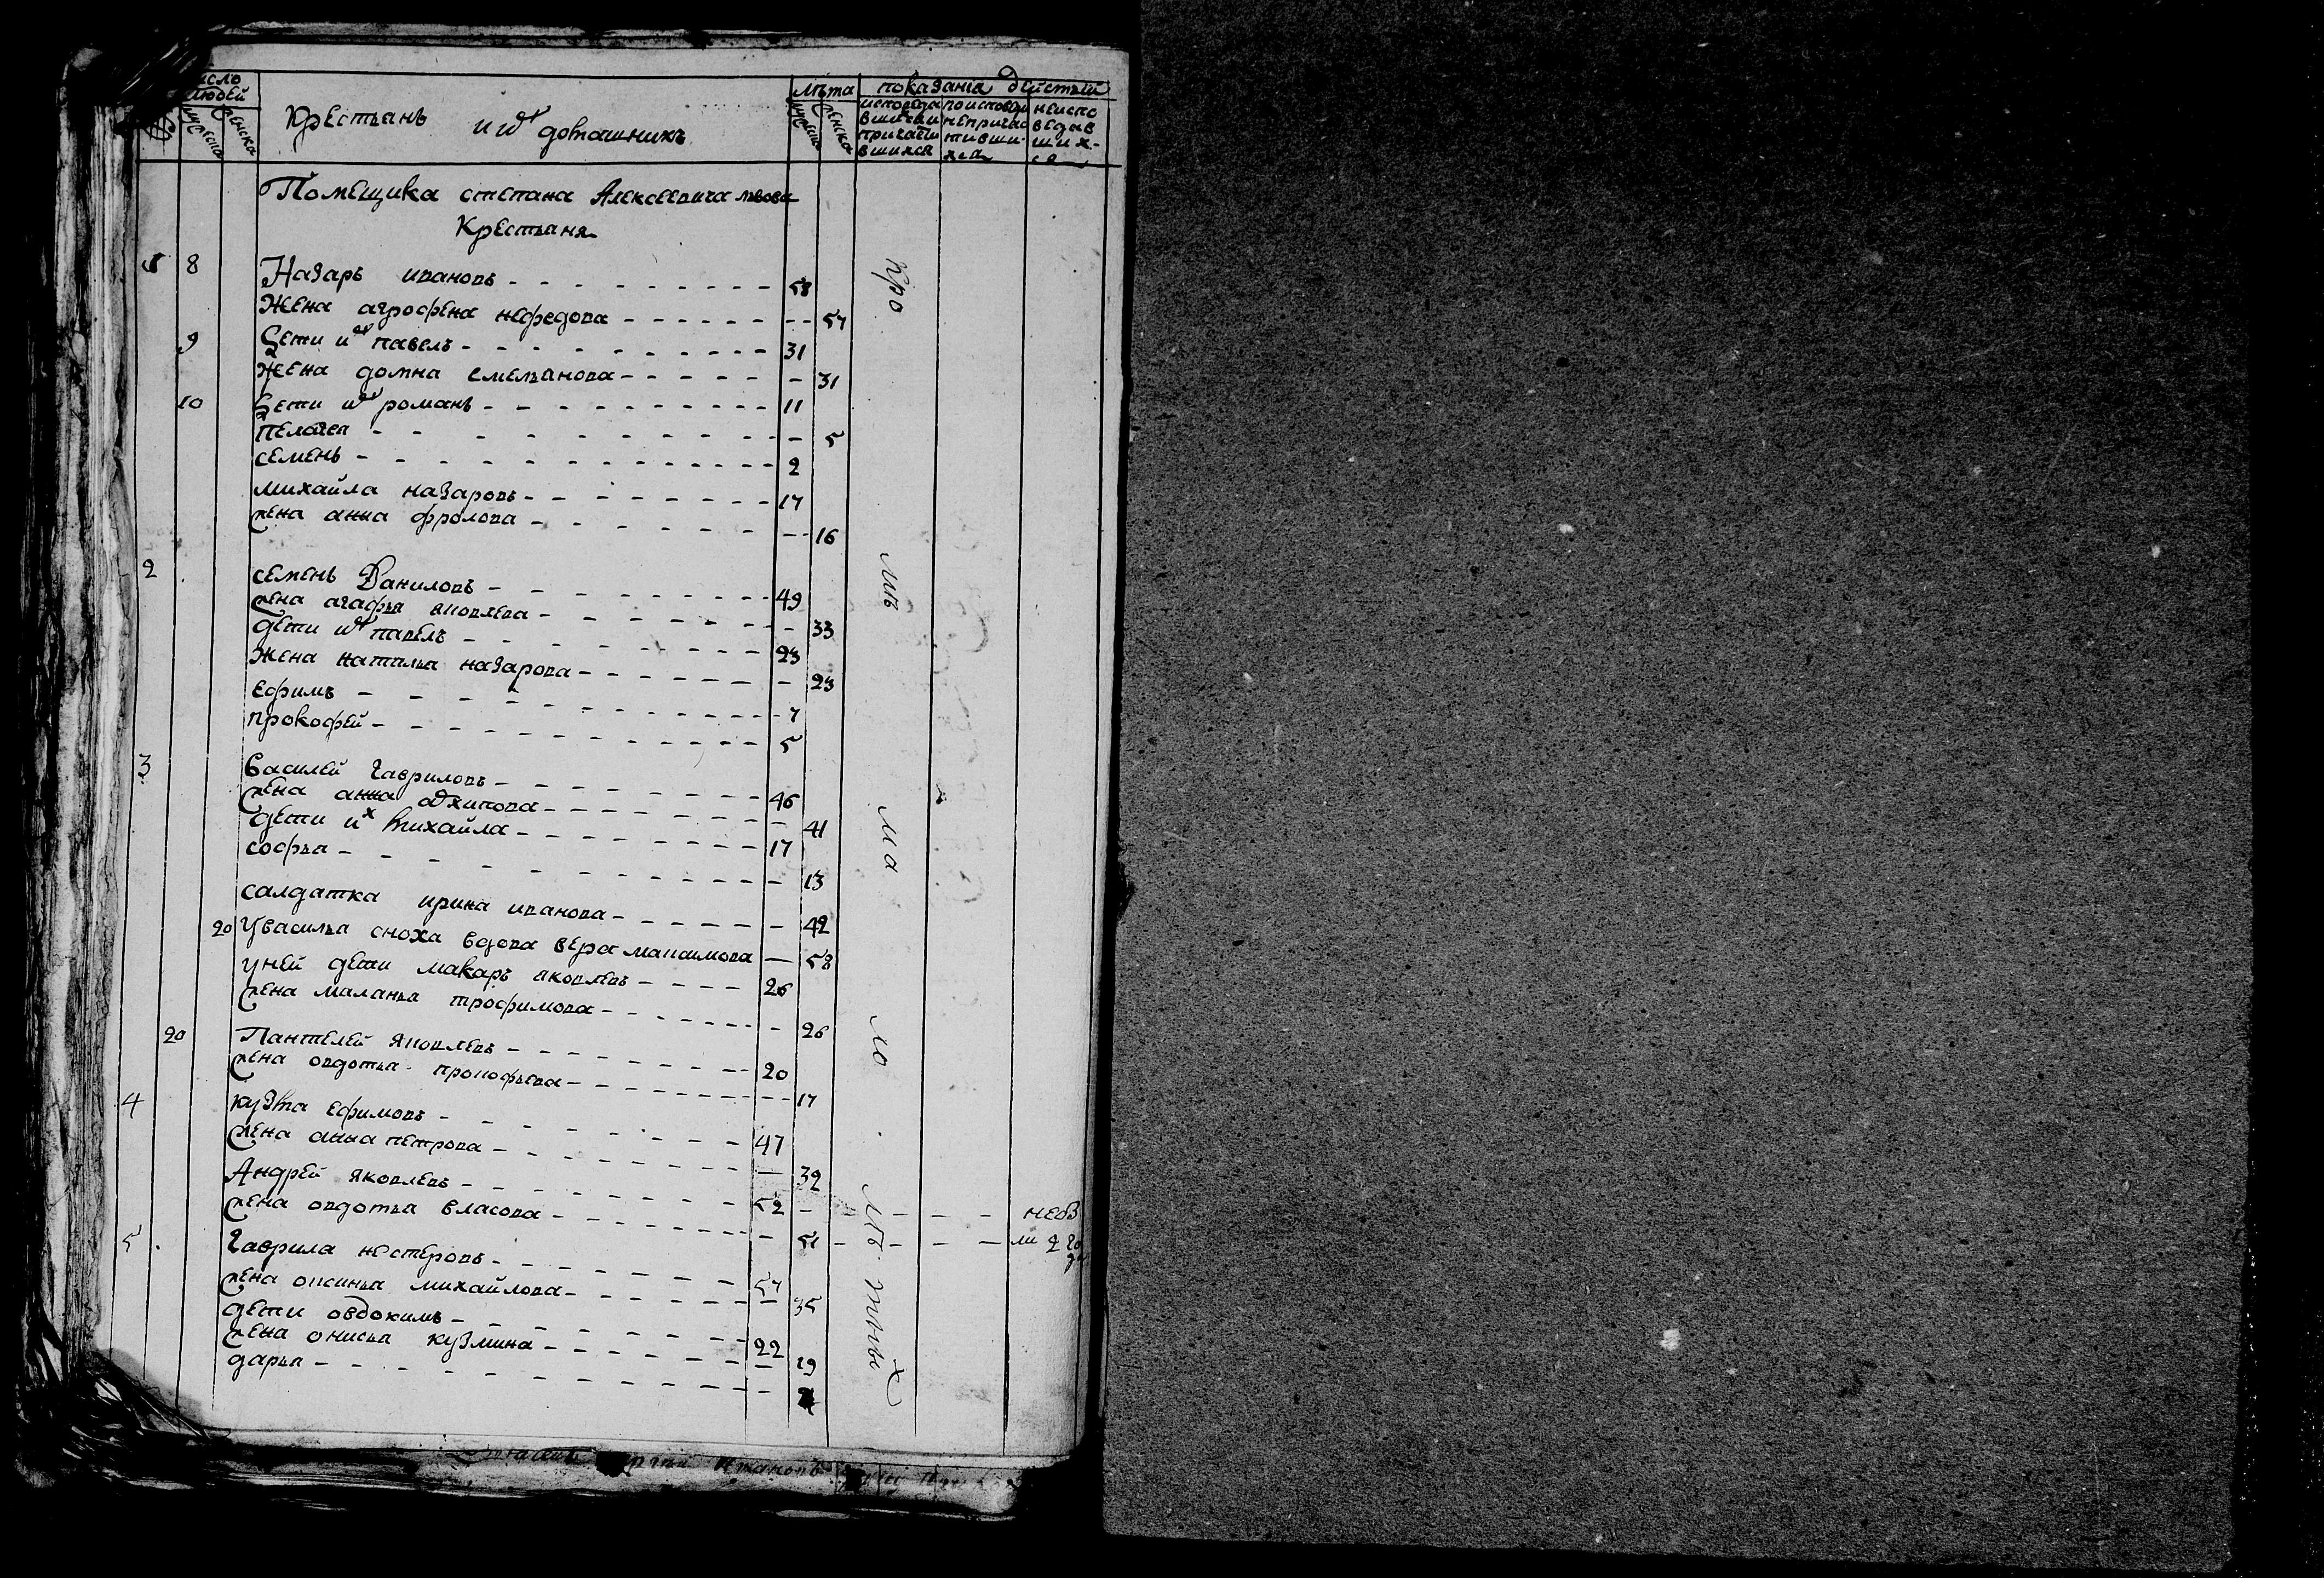 число людей
мужеска женска
Крестьянъ и их домашникъ
лѣта
мужеска женска
показанiа действій
исповедавшихъ и причастившихся
по исповеди непричастившихся
неисповедавшихся
Помещика степана Алексеевича львова
Крестьяня
8 Назаръ ивановъ 58
Жена агрофена нефедова 57
9 Дети их павелъ 31
Жена домна емельянова 31
10 Дети их романъ 11
пелагея 5
семенъ 2
михайла назаровъ 17
жена анна фролова 16
2 семенъ Даниловъ 49
жена агафья яковлева 33
дети их павелъ 23
Жена наталья назарова 23
ефимъ 7
прокофей 5
3 василей гавриловъ 46
жена анна архипова 41
дети их михайла 17
софья 13
салдатка ирина иванова 42
20 У василья сноха вдова вера максимова 58
у ней дети макаръ яковлевъ 26
жена маланья трофимова 26
20 Пантелей яковлевъ 20
жена овдотья прокофьева 17
4 кузма ефимовъ 47
жена анна петрова 32
Андрей яковлевъ 52
жена овдотья власова 51
5 гаврила нестеровъ 57
жена оксинья михайлова 35
дети овдокимъ 22
жена онисья кузмина 19
дарья
кро
мѣ
ма
ло
лѣтных